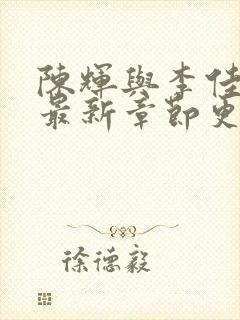 陳輝與李佳
最新章節更
徐德毅